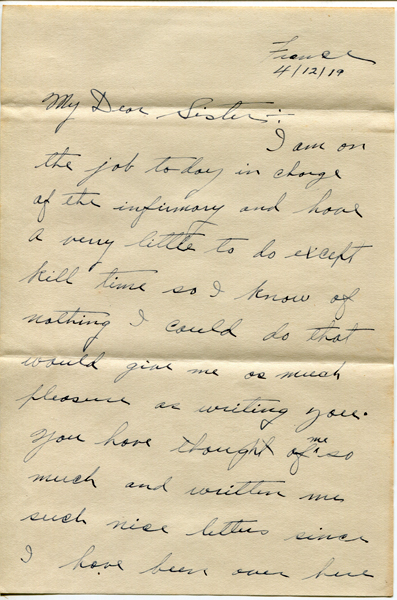 France
4/12/19
My Dear Sister:-
I am on
the job today in charge
of the infirmary and have
a very little to do except
kill time so I know of
nothing I could do that
would give me as much
pleasure as writing you.
You have thought of me so
much and written me
such nice letters since
I have been over here